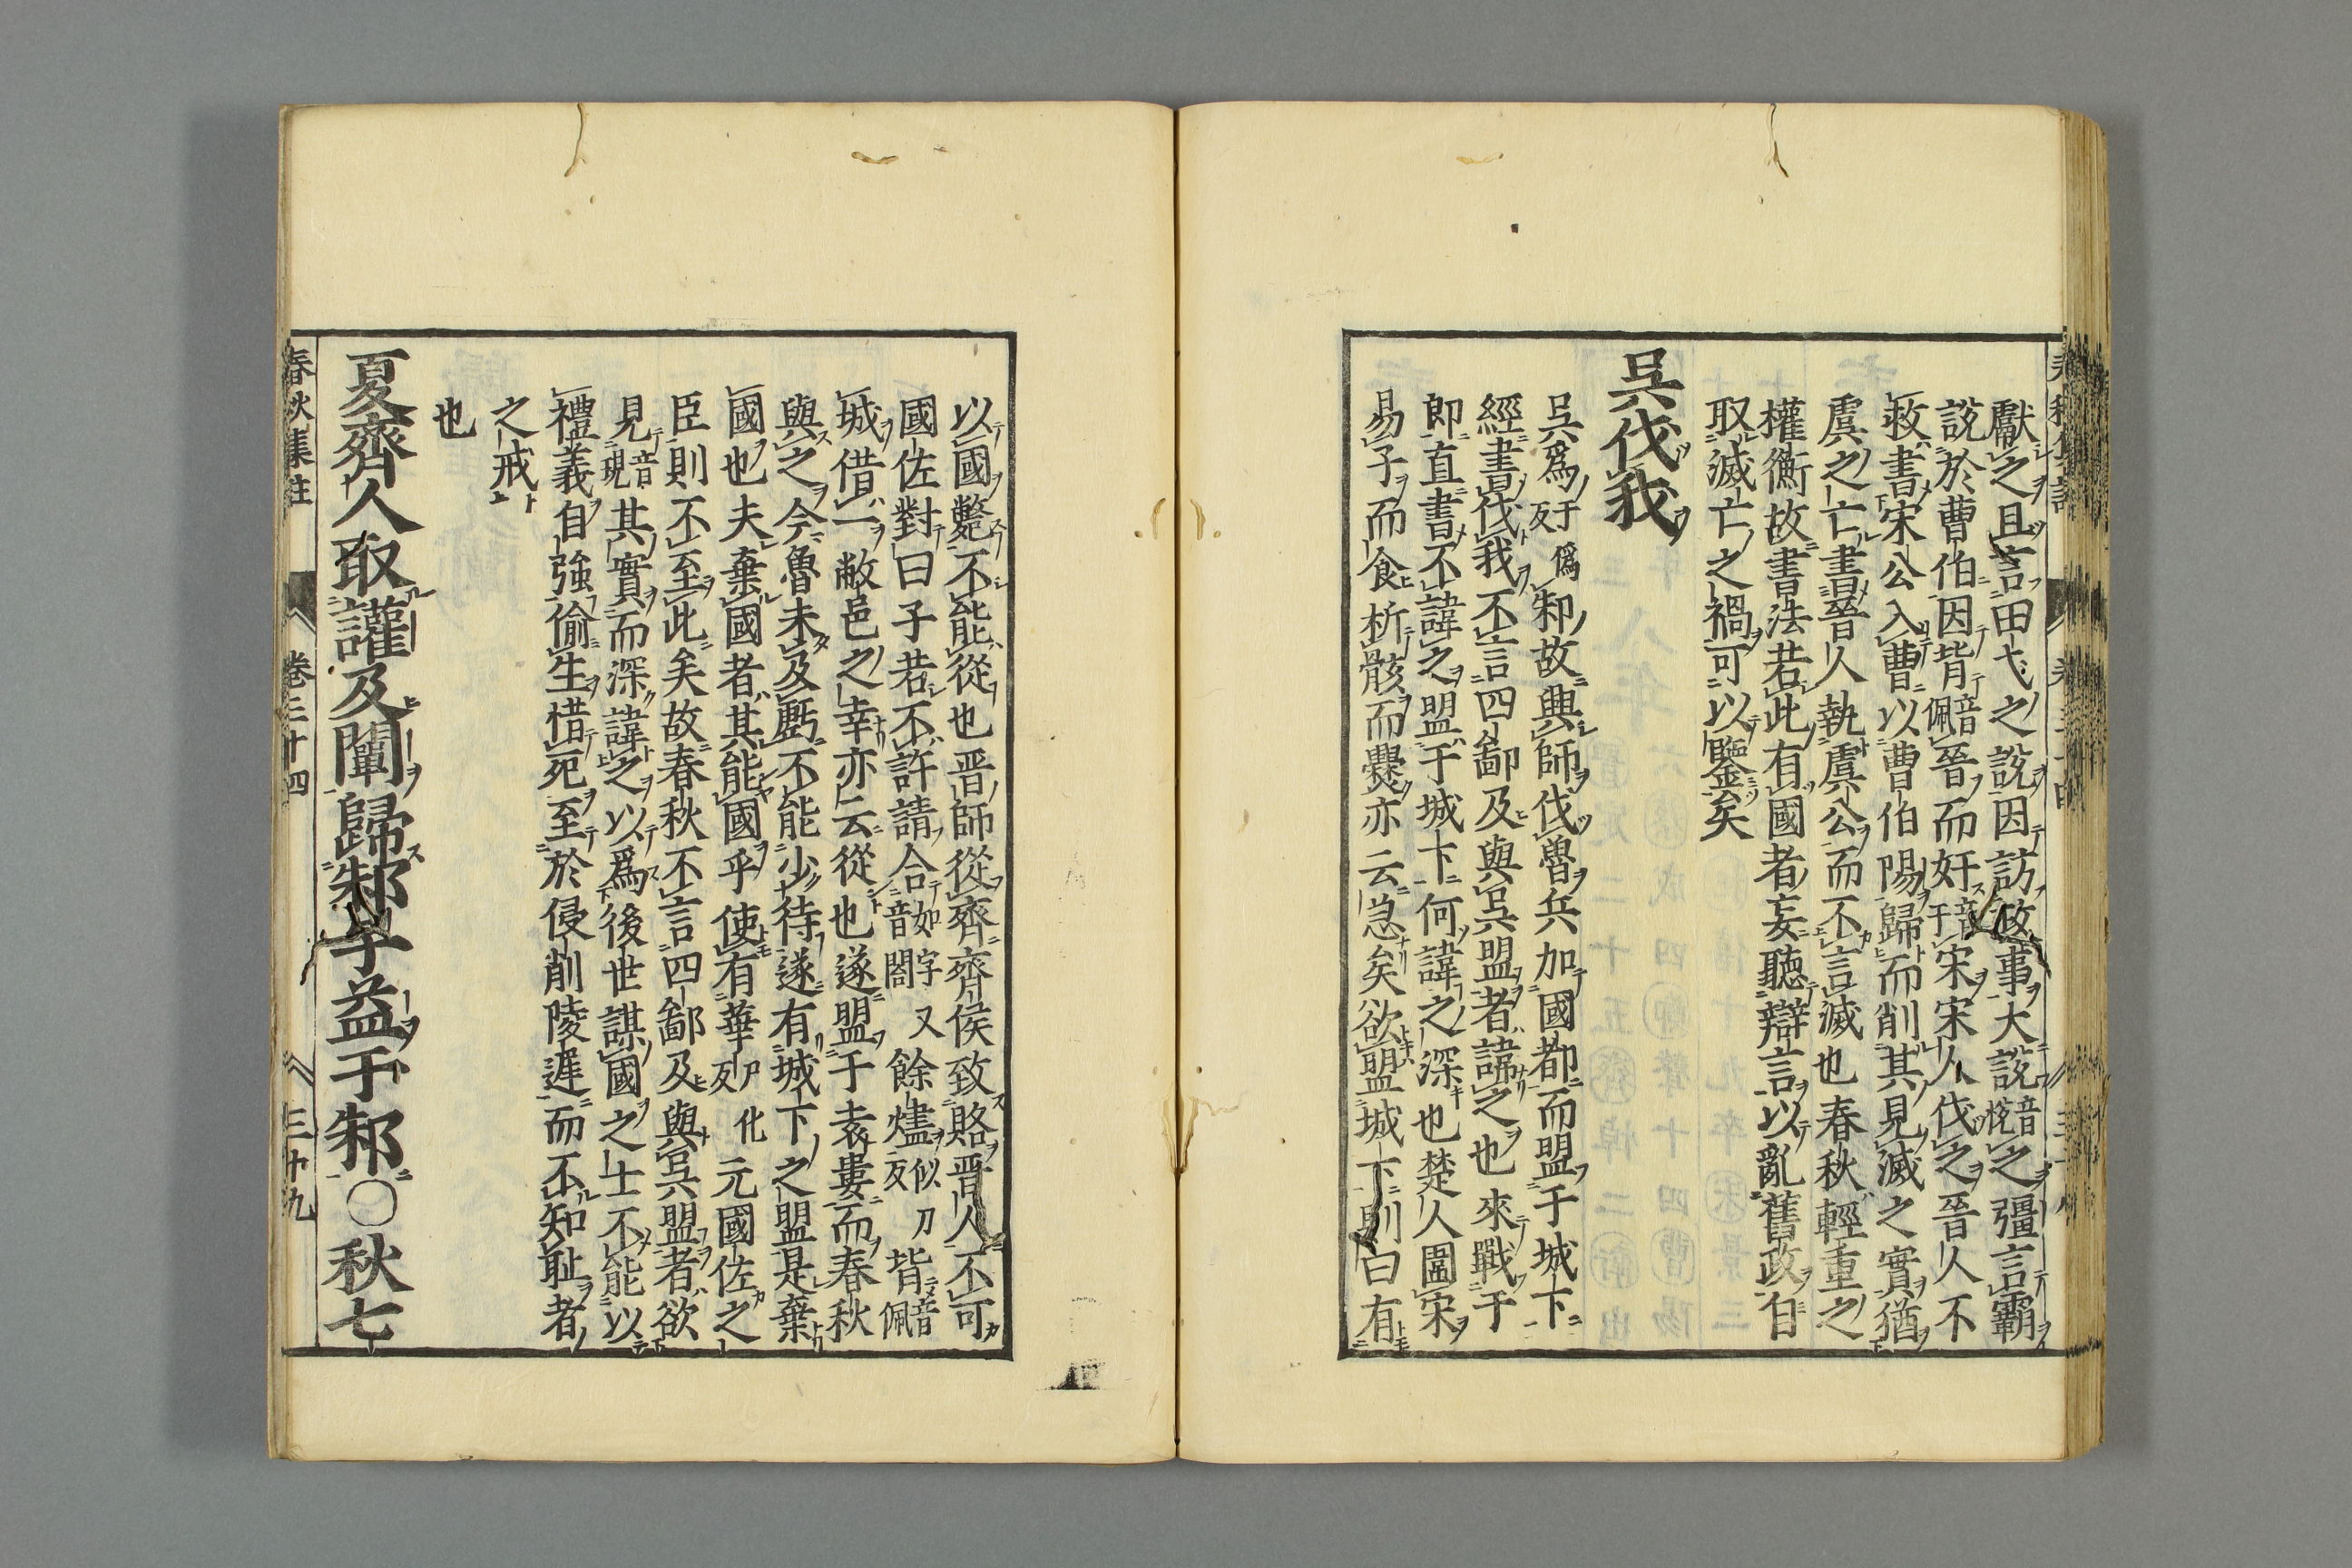 獻之且言田弋之說因訪政事大說音悅之彊言霸
說於曹伯因背音佩晉而奸音干宋宋人伐之晉人不
救書宋公入曹以曹伯陽歸而削其見滅之實猶
虞之亡書晉人執虞公而不言滅也春秋輕重之
權衡故書法若此有國者妄聽辯言以亂舊政自
取滅亡之禍可以鑒矣
吳伐我
吳爲于僞反邾故興師伐魯兵加國都而盟于城下
經書伐我不言四鄙及與吳盟者諱之也來戰于
郎直書不諱之盟于城下何諱之深也楚人圍宋
易子而食析骸而爨亦云急矣欲盟城下則曰有
以國斃不能從也晉師從齊齊侯致賂晉人不可
國佐對曰子若不許請合如字又音閤餘燼似刃反背音佩
城借一敝邑之幸亦云從也遂盟于袁婁而春秋
與之今魯未及虧不能少待遂有城下之盟是棄
國也夫棄國者其能國乎使有華戶化反元國佐之
臣則不至此矣故春秋不言四鄙及與吳盟者欲
見音現其實而深諱之以爲後世謀國之士不能以
禮義自強偷生惜死至於侵削陵遲而不知耻者
之戒
也
夏齊人取讙及闡歸邾子益于邾○秋七
春秋集註 卷三十四 三十九